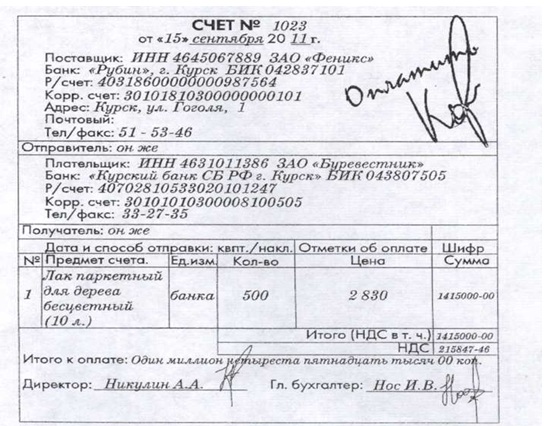 СЧЕТ № 1023
от «15» сентября 20 11 г.
Поставщик: ИНН 4645067889 ЗАО «Феникс»
Банк: «Рубин», г. Курск БИК 042837101
Р/счет: 40318600000000987564
Корр. счет: 30101810300000000101
Адрес: Курск, ул. Гоголя, 1
Почтовый:
Тел/факс: 51 - 53-46
Оплатить
Отправитель: он же
Плательщик: ИНН 4631011386 ЗАО «Буревестник»
Банк: «Курский банк СБ РФ г. Курск» БИК 043807505
Р/счет: 40702810533020101247
Корр. счет: 30101010300008100505
Тел/факс: 33-27-35
Получатель: он же
Дата и способ отправки: квпт./накл. Отметки об оплате Шифр
№ Предмет счета. Ед.изм. Кол-во Цена Сумма
Лак паркетный
для дерева
1 бесцветный банка 500 2 830 1415000-00
(10 л.)
Итого (НДС в т. ч.) 1415000-00
НДС 215847-46
Итого к оплате: Один миллион четыреста пятнадцать тысяч 00 коп.
Директор: Никулин А.А. Гл. бухгалтер: Нос И.В.